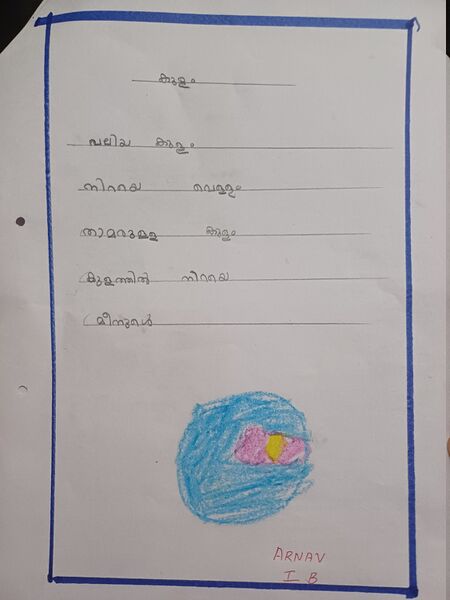 കുളം
വലിയ കുളം
നിറയെ വെള്ളം
താമരയുള്ള കുളം
കുളത്തിൽ നിറയെ
മീനുകൾ
ARNAV
I B